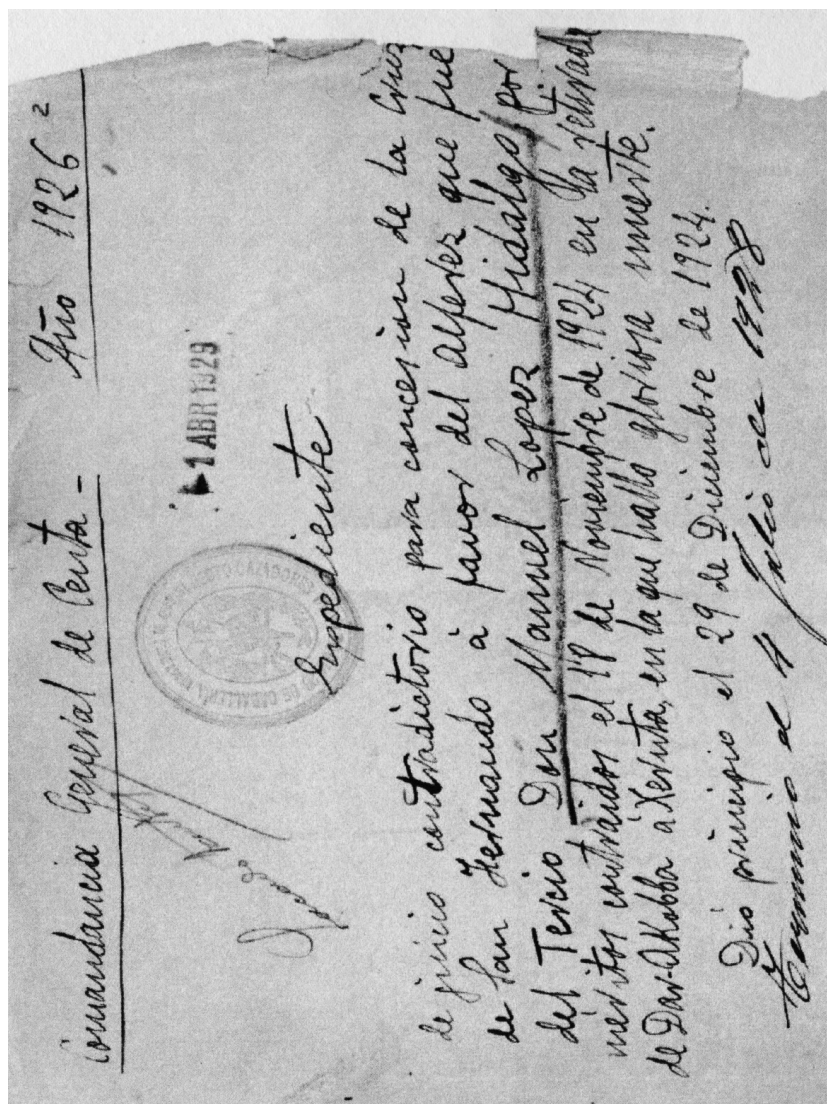 Comandancia General de Ceuta - Año 1926 2
1 ABR 1929
Expediente
de juicio contradictorio para concesion de la Cruz
de San Fernando à favor del alferez que fue
del Tercio Don Manuel Lopez Hidalgo por
méritos contraidos el 18 de Noviembre de 1924 en la retirada
de Dar-Akobba a Xeruta, en la que halló gloriosa muerte.
Dió principio el 29 de Diciembre de 1924.
Termino el 4 Julio de 1928